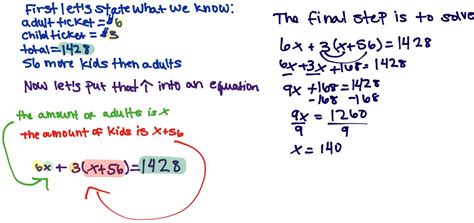 First let's state what we know:
adult ticket = $6
child ticket = $3
total = 1428
56 more kids then adults
Now let's put that ↑ into an equation
the amount of adults is x
the amount of kids is x+56
6x + 3(x+56) = 1428
The final step is to solve
6x + 3(x+56) = 1428
6x + 3x + 168 = 1428
9x + 168 = 1428
-168 -168
9x = 1260
9 9
x = 140